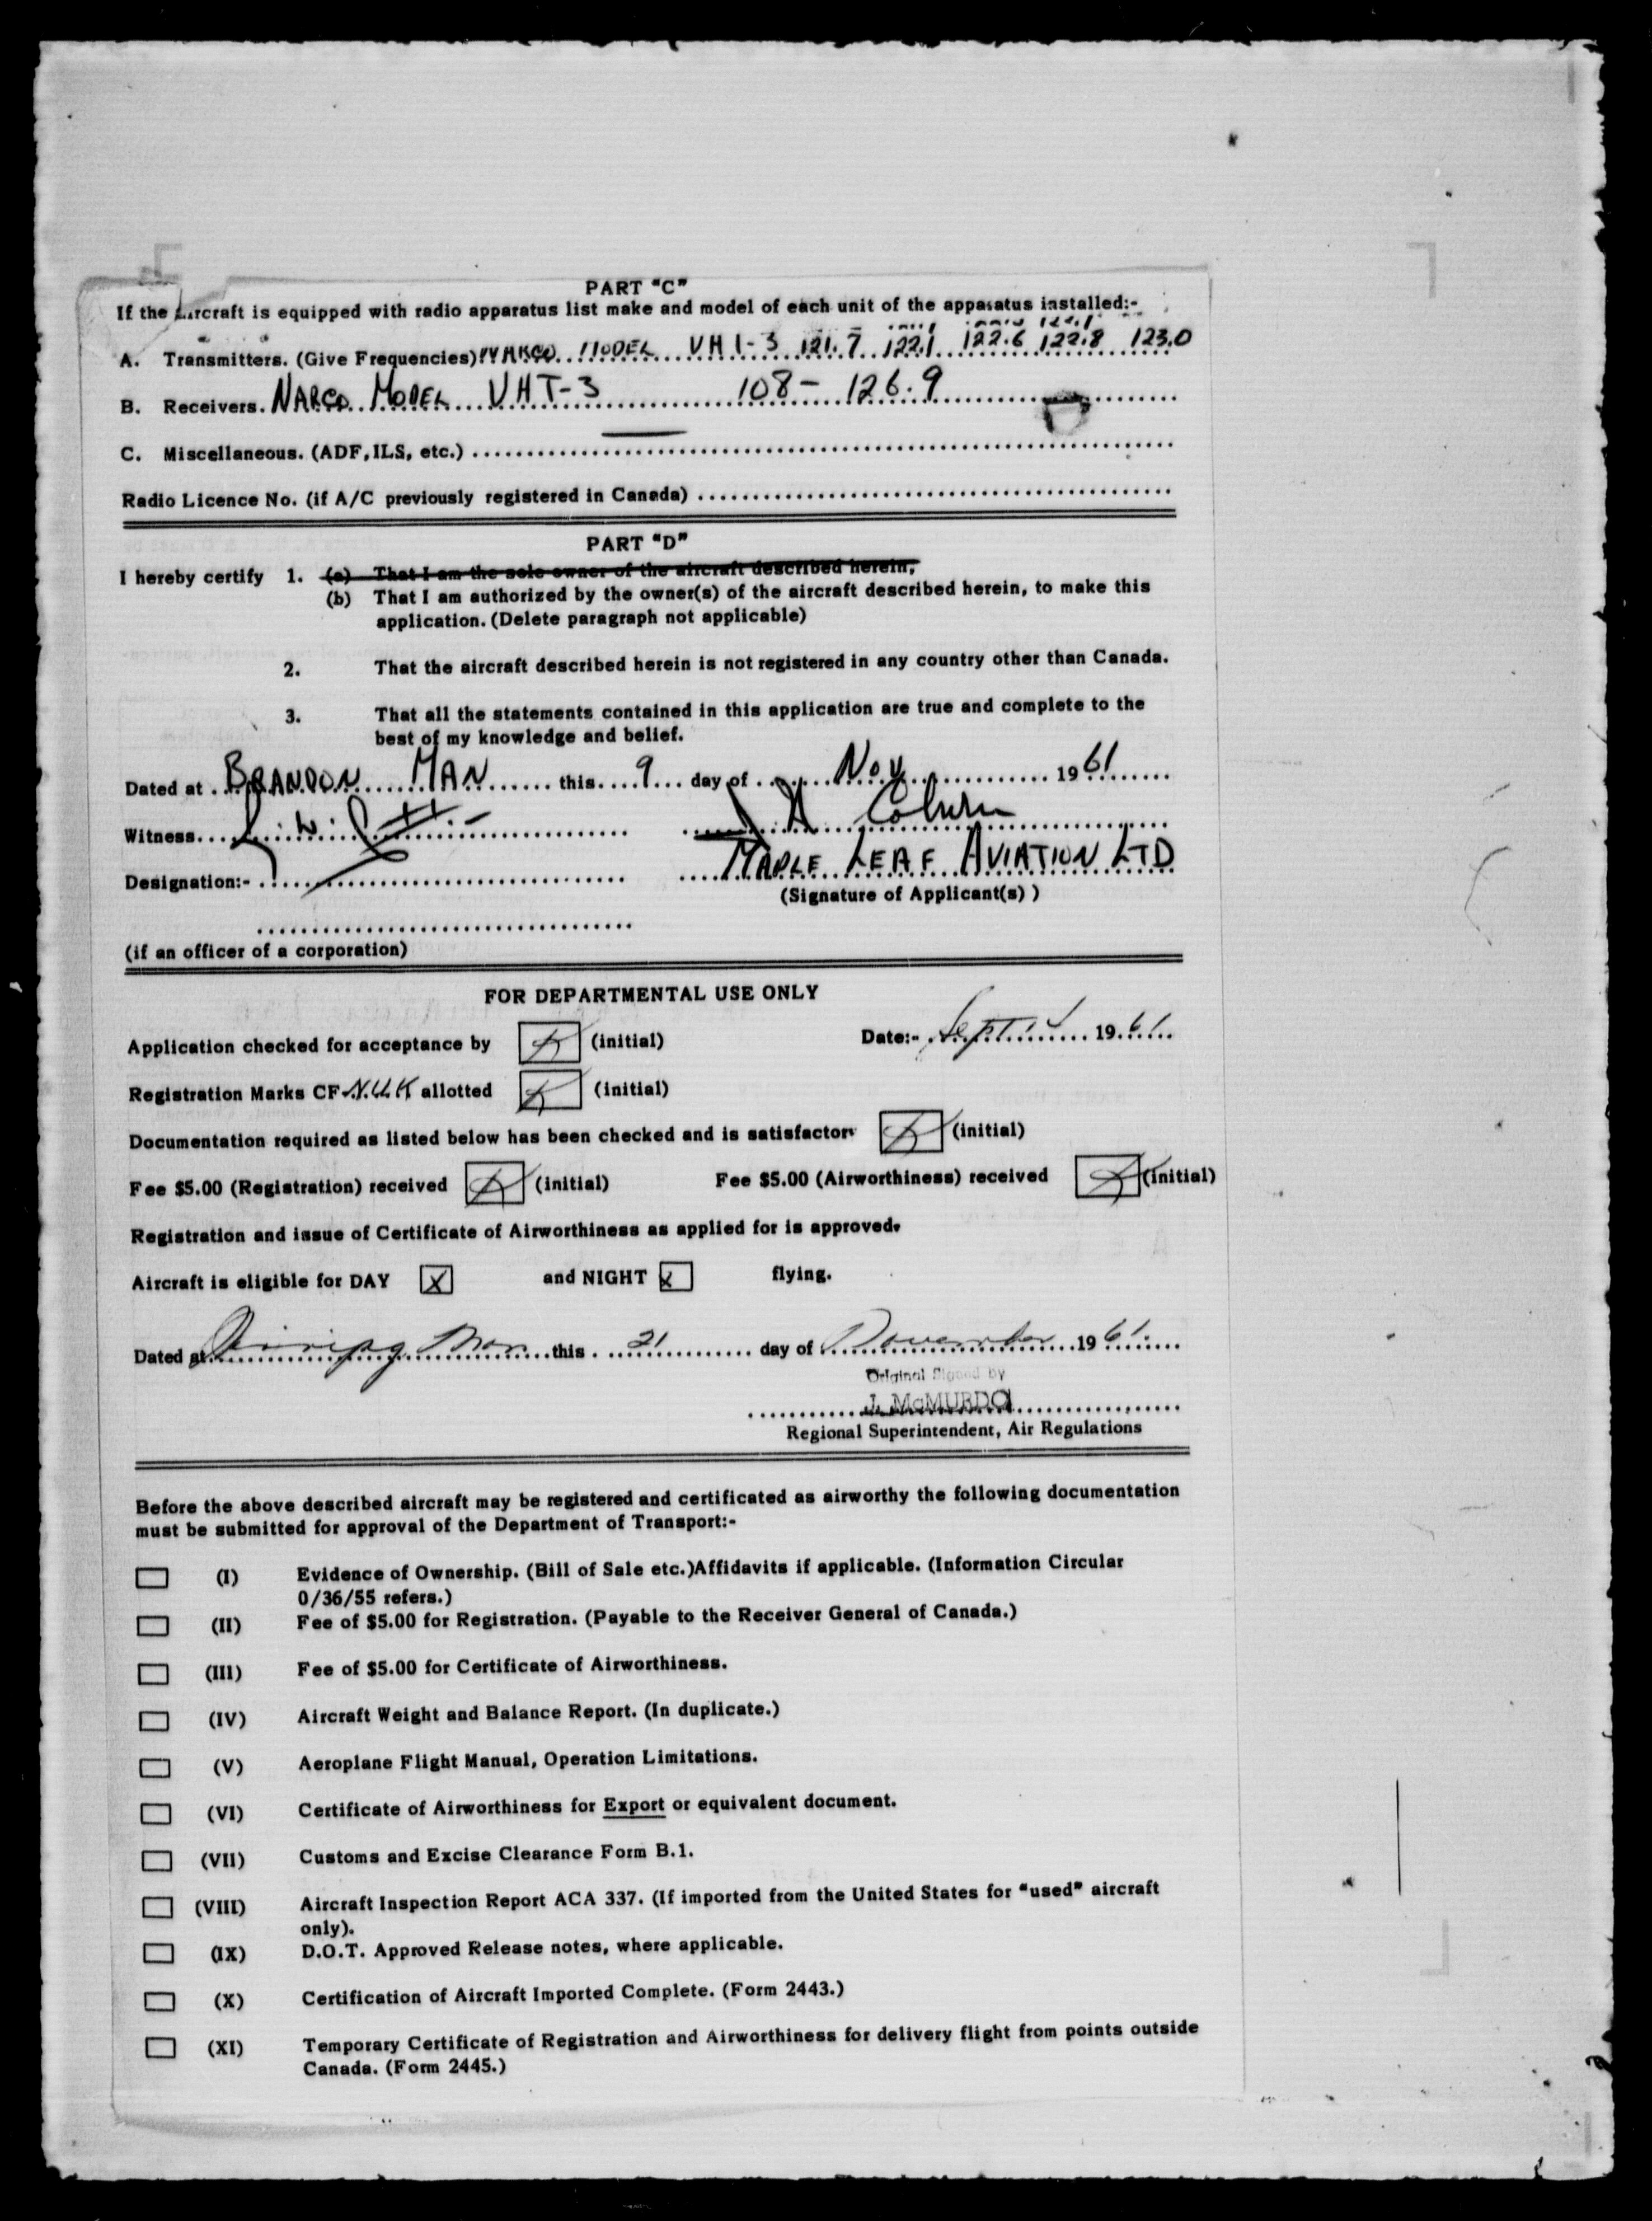 PART "C"
If the Aircraft is equipped with radio apparatus list make and model of each unit of the apparatus installed:-
A. Transmitters. (Give Frequencies) NARCO MODEL VHT-3 121.7 122.1 122.6 122.8 123.0
B. Receivers. NARCO MODEL VHT-3 108- 126.9
C. Miscellaneous. (ADF, ILS, etc.) —
Radio Licence No. (if A/C previously registered in Canada)
PART "D"
I hereby certify 1. (a) That I am the sole owner of the aircraft described herein;
(b) That I am authorized by the owner(s) of the aircraft described herein, to make this
application. (Delete paragraph not applicable)
2. That the aircraft described herein is not registered in any country other than Canada.
3. That all the statements contained in this application are true and complete to the
best of my knowledge and belief.
Dated at BRANDON MAN this 9 day of Nov 1961
Witness
Designation:- MAPLE LEAF AVIATION LTD
(Signature of Applicant(s) )
(if an officer of a corporation)
FOR DEPARTMENTAL USE ONLY
Application checked for acceptance by (initial) Date:- Sept 1961
Registration Marks CF-NUK allotted (initial)
Documentation required as listed below has been checked and is satisfactory (initial)
Fee $5.00 (Registration) received (initial) Fee $5.00 (Airworthiness) received (initial)
Registration and issue of Certificate of Airworthiness as applied for is approved.
Aircraft is eligible for DAY X and NIGHT X flying.
Dated at Winnipeg Man this 21 day of November 1961
Original Signed by
J. McMURDO
Regional Superintendent, Air Regulations
Before the above described aircraft may be registered and certificated as airworthy the following documentation
must be submitted for approval of the Department of Transport:-
(I) Evidence of Ownership. (Bill of Sale etc.)Affidavits if applicable. (Information Circular
0/36/55 refers.)
(II) Fee of $5.00 for Registration. (Payable to the Receiver General of Canada.)
(III) Fee of $5.00 for Certificate of Airworthiness.
(IV) Aircraft Weight and Balance Report. (In duplicate.)
(V) Aeroplane Flight Manual, Operation Limitations.
(VI) Certificate of Airworthiness for Export or equivalent document.
(VII) Customs and Excise Clearance Form B.1.
(VIII) Aircraft Inspection Report ACA 337. (If imported from the United States for "used" aircraft
only).
(IX) D.O.T. Approved Release notes, where applicable.
(X) Certification of Aircraft Imported Complete. (Form 2443.)
(XI) Temporary Certificate of Registration and Airworthiness for delivery flight from points outside
Canada. (Form 2445.)